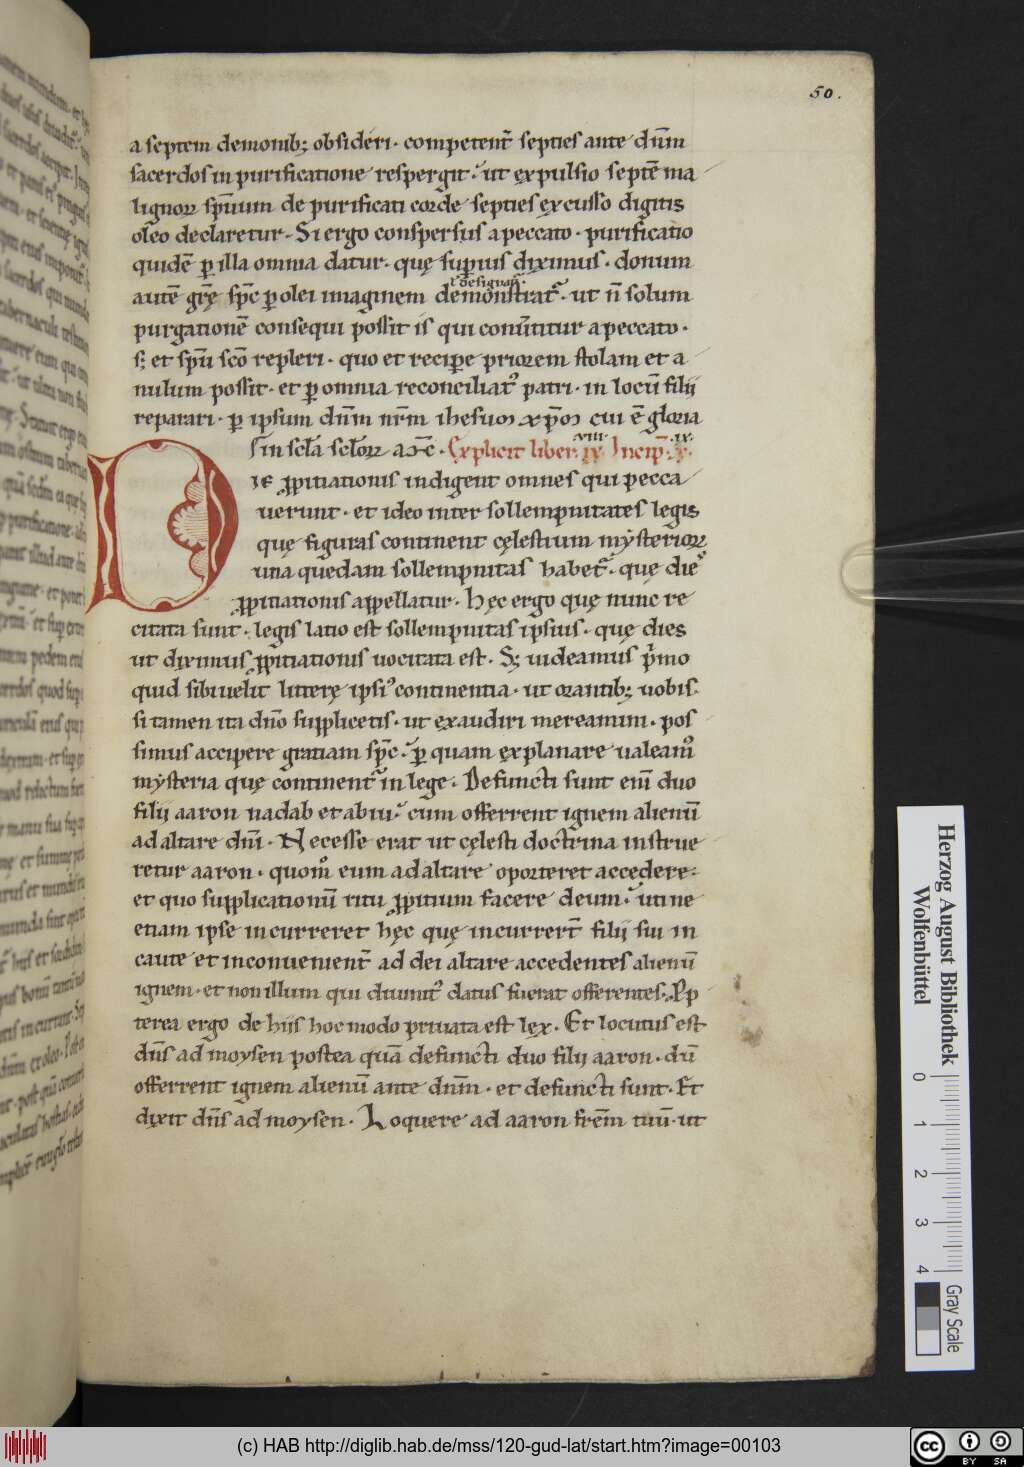 50.
a septem demonib; obsideri· competent̄ septies ante dn̄m
sacerdos in purificatione respergit· ut ęxpulsio septē ma
lignoꝝ sp̄uum de purificati corde septies ęxcusso digitis
oleo declaretur· Si ergo conspersus a peccato· purificatio
quidē ꝑ illa omnia datur· quę superius diximus· donum
ł designat̄·
autē gr̄ę sp̄c ꝑ olei imaginem demonstrat̄· ut n̄ solum
purgationē consequi possit is qui conūtitur a peccato·
s; et sp̄u sc̄o repleri· quo et recipe priorem stolam et a
nulum possit· et ꝑ omnia reconciliat᷒ patri· in locū filii
reparari· ꝑ ipsum dn̄m nr̄m ihesum xp̄m cui ē gloria
D
in scl̄a scl̄oꝝ am̄· Explicit liber ix Incip̄ x·
viii· ix·
ie ꝓpitiationis indigent omnes qui pecca
uerunt· et ideo inter sollempnitates legis
quę figuras continent cęlestium mẏsterioꝝ
una quedam sollempnitas habet̄· que die᷒
ꝓpitiationis appellatur· Hęc ergo quę nunc re
citata sunt· legis latio est sollempnitas ipsius· quę dies
ut diximus ꝓpitiationis uocitata est· S; uideamus p̄mo
quid sibi uelit litterę ipsi᷒ continentia· ut orantib; uobis·
si tamen ita dn̄o supplicetis· ut ęxaudiri mereamini· pos
simus accipere gratiam sp̄c· ꝑ quam ęxplanare ualeam᷒
mẏsteria quę continent̄ in lege· Defuncti sunt enī duo
filii aaron nadab et abiu· cum offerrent ignem alienū
ad altare dn̄i· Necesse erat ut cęlesti doctrina instrue
retur aaron· quom᷒ eum ad altare oporteret accędere·
et quo supplicationū ritu ꝓpitium facere deum· uti ne
etiam ipse incurreret hęc quę incurrert̄ filii sui in
caute et inconuenient̄ ad dei altare accedentes alienū
ignem· et non illum qui diuinit᷒ datus fuerat offerentes· Ꝓp
terea ergo de hiis hoc modo priuata est lęx· Et locutus est
dn̄s ad moysen postea quā defuncti duo filii aaron· dū
offerrent ignem alienū ante dn̄m· et defuncti sunt· Et
dixit dn̄s ad moysen· Loquere ad aaron fr̄em tuū· ut
Herzog August Bibliothek
Wolfenbüttel
0 1 2 3 4
Gray Scale
(c) HAB http://diglib.hab.de/mss/120-gud-lat/start.htm?image=00103
cc BY SA